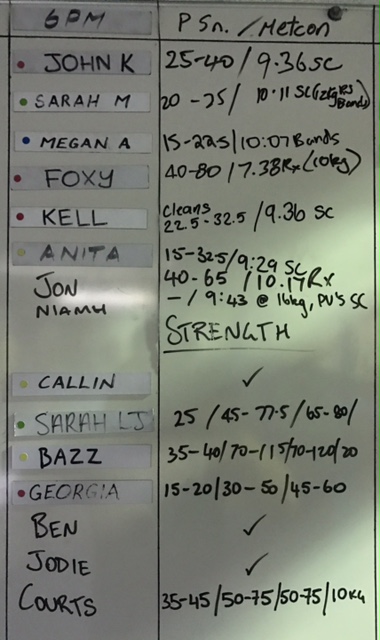 6PM PSn. / Metcon
JOHN K 25-40 / 9.36 SC
SARAH M 20-25 / 10.11 SC (12kg RS Bands)
MEGAN A 15-22.5 | 10:07 Bands
FOXY 40-80 / 7.38 Rx (10kg)
KELL Cleans 22.5-32.5 / 9.36 SC
ANITA 15-32.5 / 9:29 SC
JON 40-65 / 10.17 Rx
NIAMH - / 9:43 @ 16kg, PU's SC
STRENGTH
CALLIN ✓
SARAH LJ 25 / 45-77.5 / 65-80 /
BAZZ 35-40 / 70-115 / 70-120 / 20
GEORGIA 15-20 / 30-50 / 45-60
BEN ✓
JODIE ✓
COURTS 35-45 / 50-75 / 50-75 / 10KG